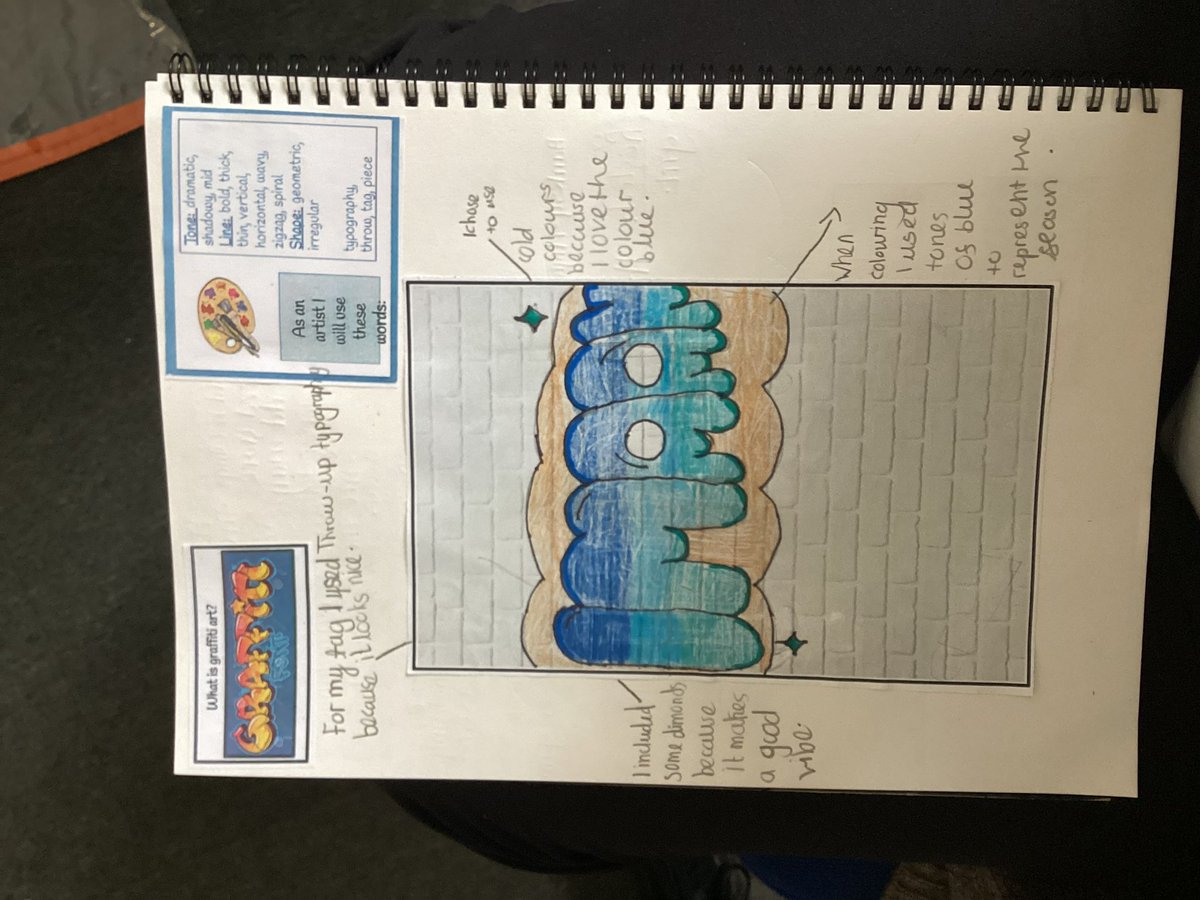 What is graffiti art?
GRAFFITI
FONT
As an
artist I
will use
these
words:
Tone: dramatic,
shadowy, mid
Line: bold, thick,
thin, vertical,
horizontal, wavy,
zigzag, spiral
Shape: geometric,
irregular
typography,
throw, tag, piece
For my tag I used Throw-up typography
because it looks nice.
I chose
to use
cold
colours
because
I love the
colour
blue.
I included
some dimonds
because
it makes
a good
vibe.
when
colouring
I used
tones
of blue
to
represent the
season.